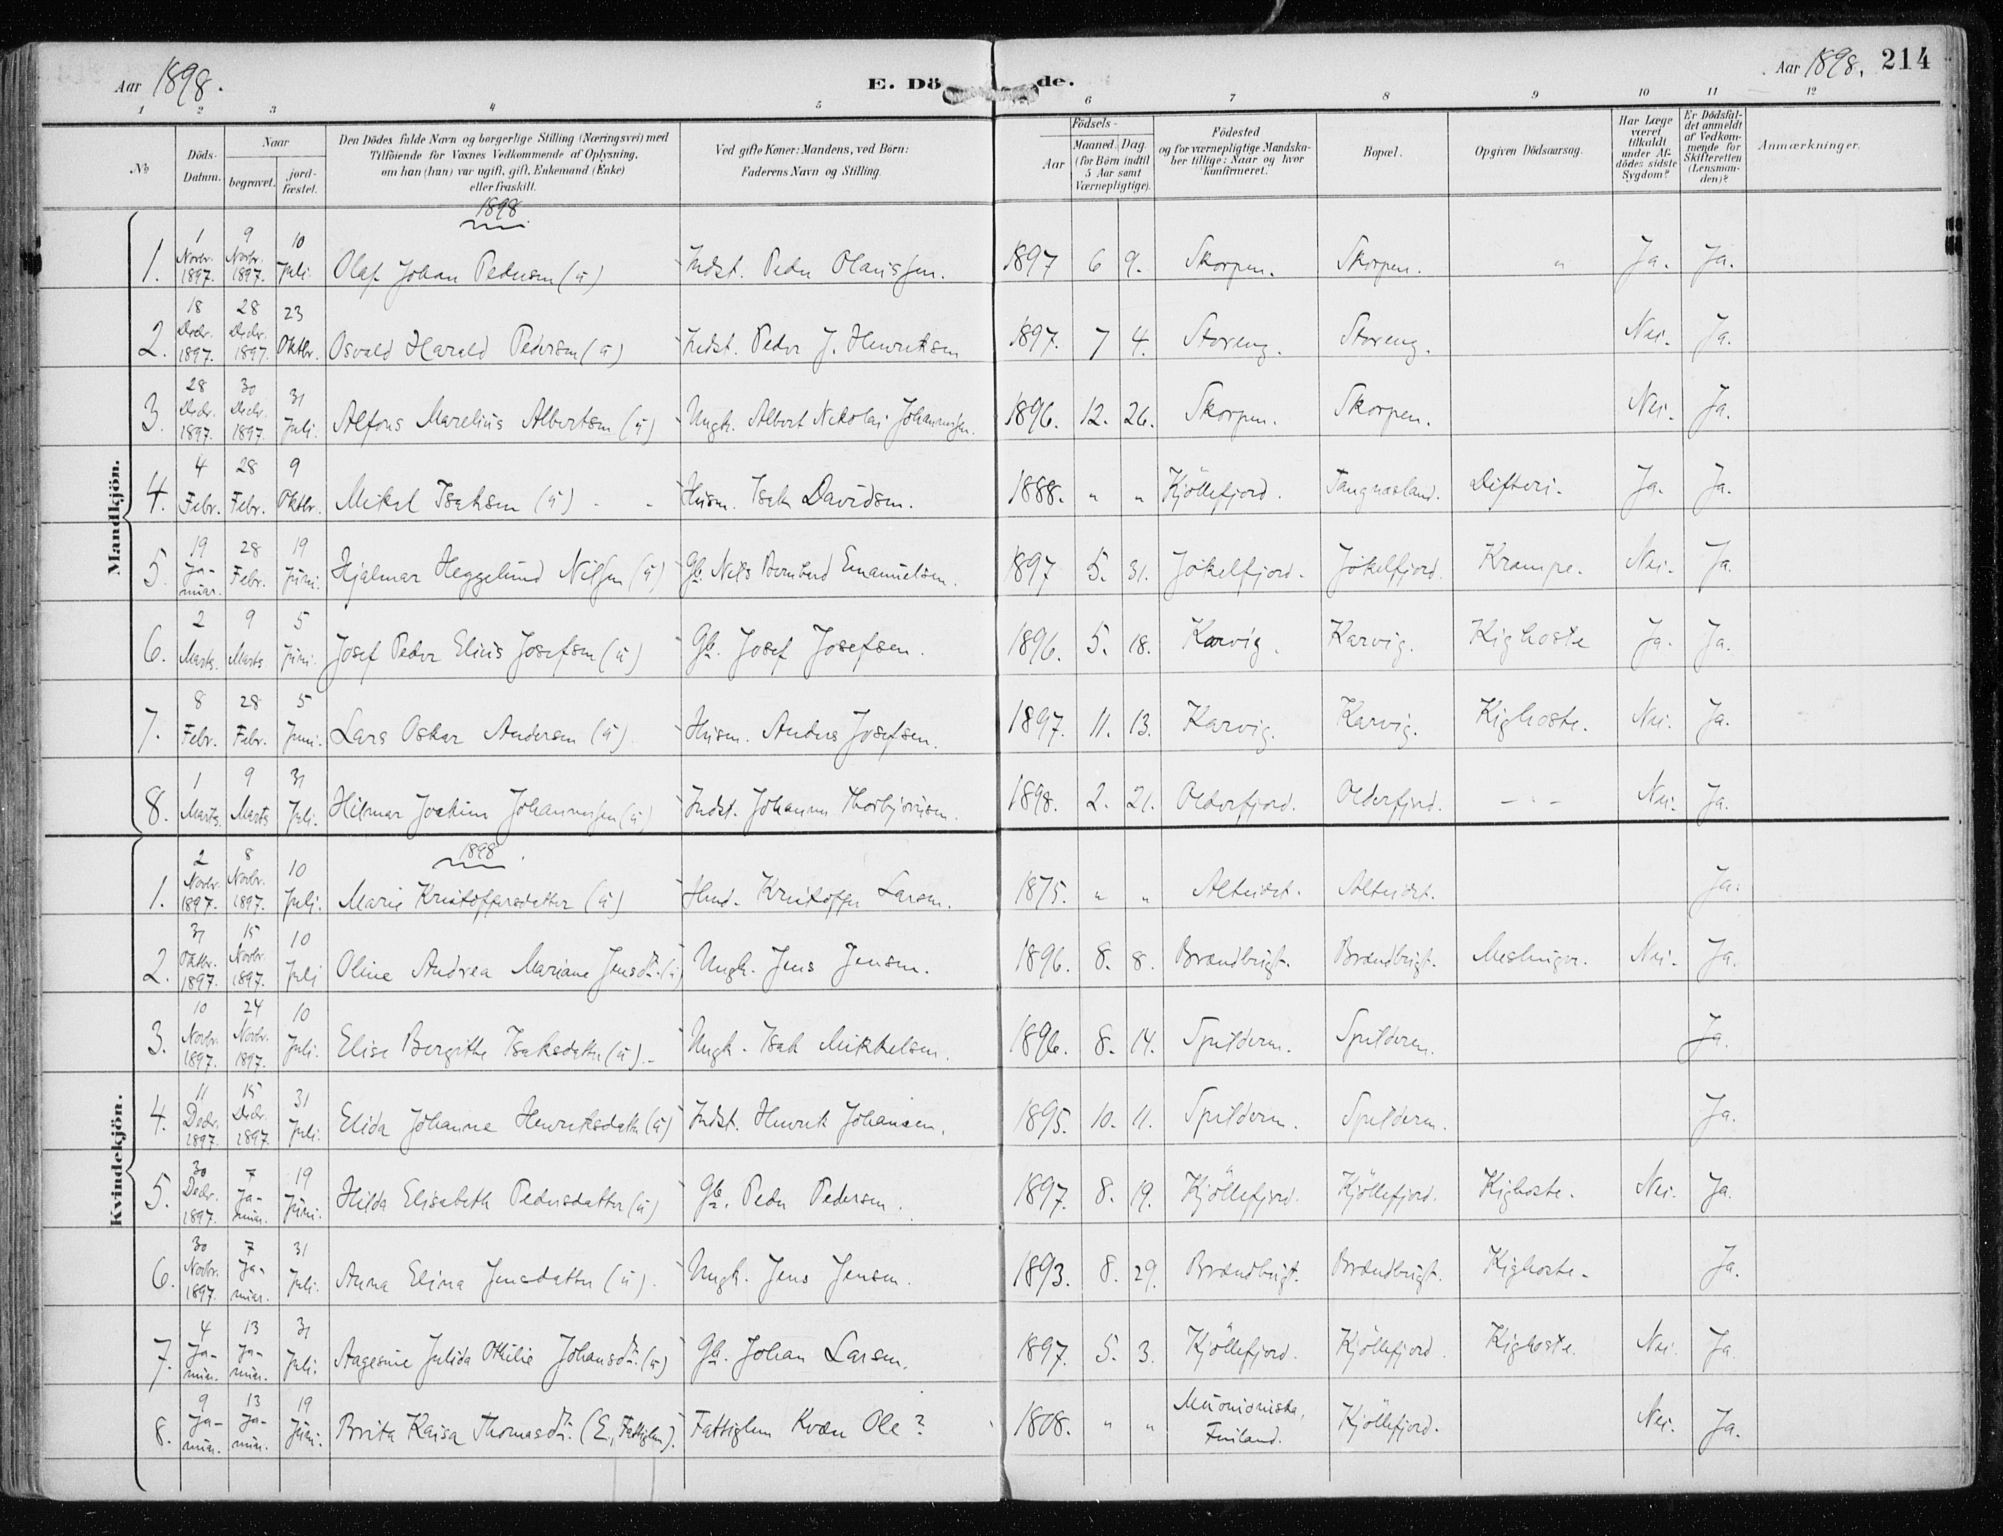 Aar 1898.
E. Dö de.
Aar 1898. 214
1 2 3 4 5 6 7 8 9 10 11 12
No
Döds-Datum.
Naar
begravet.
jord-fæstet.
Den Dödes fulde Navn og borgerlige Stilling (Næringsvei) med
Tilföiende for Voxnes Vedkommende af Oplysning,
om han (hun) var ugift, gift, Enkemand (Enke)
eller fraskilt.
Ved gifte Koner: Mandens, ved Börn:
Faderens Navn og Stilling.
Födsels-
Aar
Maaned. Dag.
(for Börn indtil
5 Aar samt
Værnepligtige).
Födested
og for værnepligtige Mandska-
ber tillige: Naar og hvor
konfirmeret.
Bopæl.
Opgiven Dödsaarsag.
Har Læge
været
tilkaldt
under Af-
dödes sidste
Sygdom?
Er Dödsfal-
det anmeldt
af Vedkom-
mende for
Skifteretten
(Lensman-
den)?
Anmærkninger.
Mandkjön.
1898
1. 1 Novbr. 1897. 9 Novbr. 1897. 10 Juli. Olaf Johan Pedersen (u) Indst. Peder Olaussen. 1897 6 9. Skorpen. Skorpen. " Ja. Ja.
2. 18 Decbr. 1897. 28 Decbr. 1897. 23 Oktbr. Osvald Harald Pedersen (u) Indst. Peder J. Henriksen 1897. 7 4. Storeng. Storeng. Nei. Ja.
3. 28 Decbr. 1897. 30 Decbr. 1897. 31 Juli. Alfons Marelius Albertsen (u) Ungk. Albert Nikolai Johannessen. 1896. 12. 26. Skorpen. Skorpen. Nei. Ja.
4. 4 Febr. 28 Febr. 9 Oktbr. Mikal Isaksen (u) Husm. Isak Davidsen. 1888. " " Kjöllefjord. Tangnæsland. Difteri. Ja. Ja.
5. 19 Ja-nuar. 28 Febr. 19 Juni. Hjalmar Heggelund Nilsen (u) Gb. Nils Bernhard Emanuelsen. 1897 5. 31. Jökelfjord. Jökelfjord. Krampe. Nei. Ja.
6. 2 Marts. 9 Marts. 5 Juni. Josef Peder Elius Josefsen (u) Gb. Josef Josefsen. 1896. 5. 18. Karvig. Karvig. Kighoste Ja. Ja.
7. 8 Febr. 28 Febr. 5 Juni. Lars Oskar Andersen (u) Husm. Anders Josefsen. 1897. 11. 13. Karvig. Karvig. Kighoste. Nei. Ja.
8. 1 Marts. 9 Marts 31 Juli. Hilmar Joakim Johannessen (u) Indst. Johannes Thorbjörnsen. 1898. 2. 21. Olderfjord. Olderfjord. - " - Nei. Ja.
Kvindekjön.
1898
1. 2 Novbr. 1897. 8 Novbr. 1897. 10 Juli. Marie Kristoffersdatter (u) Kristoffer Larsen. 1875. " " Alteidet. Alteidet. Ja.
2. 31 Oktbr. 1897. 15 Novbr. 1897. 10 Juli Oline Andrea Mariane Jensdtr. (u) Ungk. Jens Jensen. 1896. 8. 8. Brændbugt. Brændbugt. Meslinger. Nei. Ja.
3. 10 Novbr. 1897. 24 Novbr. 1897. 10 Juli. Elise Bergithe Isaksdatter (u). Ungk. Isak Mikkelsen. 1896. 8. 14. Spilderen. Spilderen. Ja.
4. 11 Decbr. 1897. 15 Decbr. 1897. 31 Juli. Elida Johanna Henriksdatter (u) Indst. Henrik Johansen. 1895. 10. 11. Spilderen. Spilderen. Ja.
5. 30 Decbr. 1897. 7 Ja-nuar. 19 Juni. Hilda Elisabeth Pedersdatter (u) Gb. Peder Pedersen. 1897. 8. 19. Kjöllefjord. Kjöllefjord. Kighoste. Nei. Ja.
6. 30 Novbr. 1897. 7 Ja-nuar. 31 Juli. Anna Elina Jensdatter (u). Ungk. Jens Jensen. 1893. 8. 29. Brændbugt. Brændbugt. Kighoste. Ja.
7. 4 Ja-nuar. 13 Ja-nuar. 31 Juli. Aagesine Julida Othilie Johansdtr. (u) Gb. Johan Larsen. 1897. 5. 3. Kjöllefjord. Kjöllefjord. Kighoste. Nei. Ja.
8. 9 Ja-nuar. 13 Ja-nuar. 19 Juni. Brita Kaisa Thomasdtr. (E., Fattiglem). Fattiglem Kvæn Ole? 1808. " " Muonioniska, Finland. Kjöllefjord. Nei. Ja.